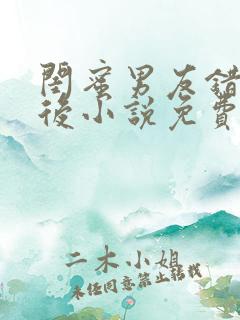 閨蜜男友錯
後小說免費
二木小姐
未经同意禁止转载